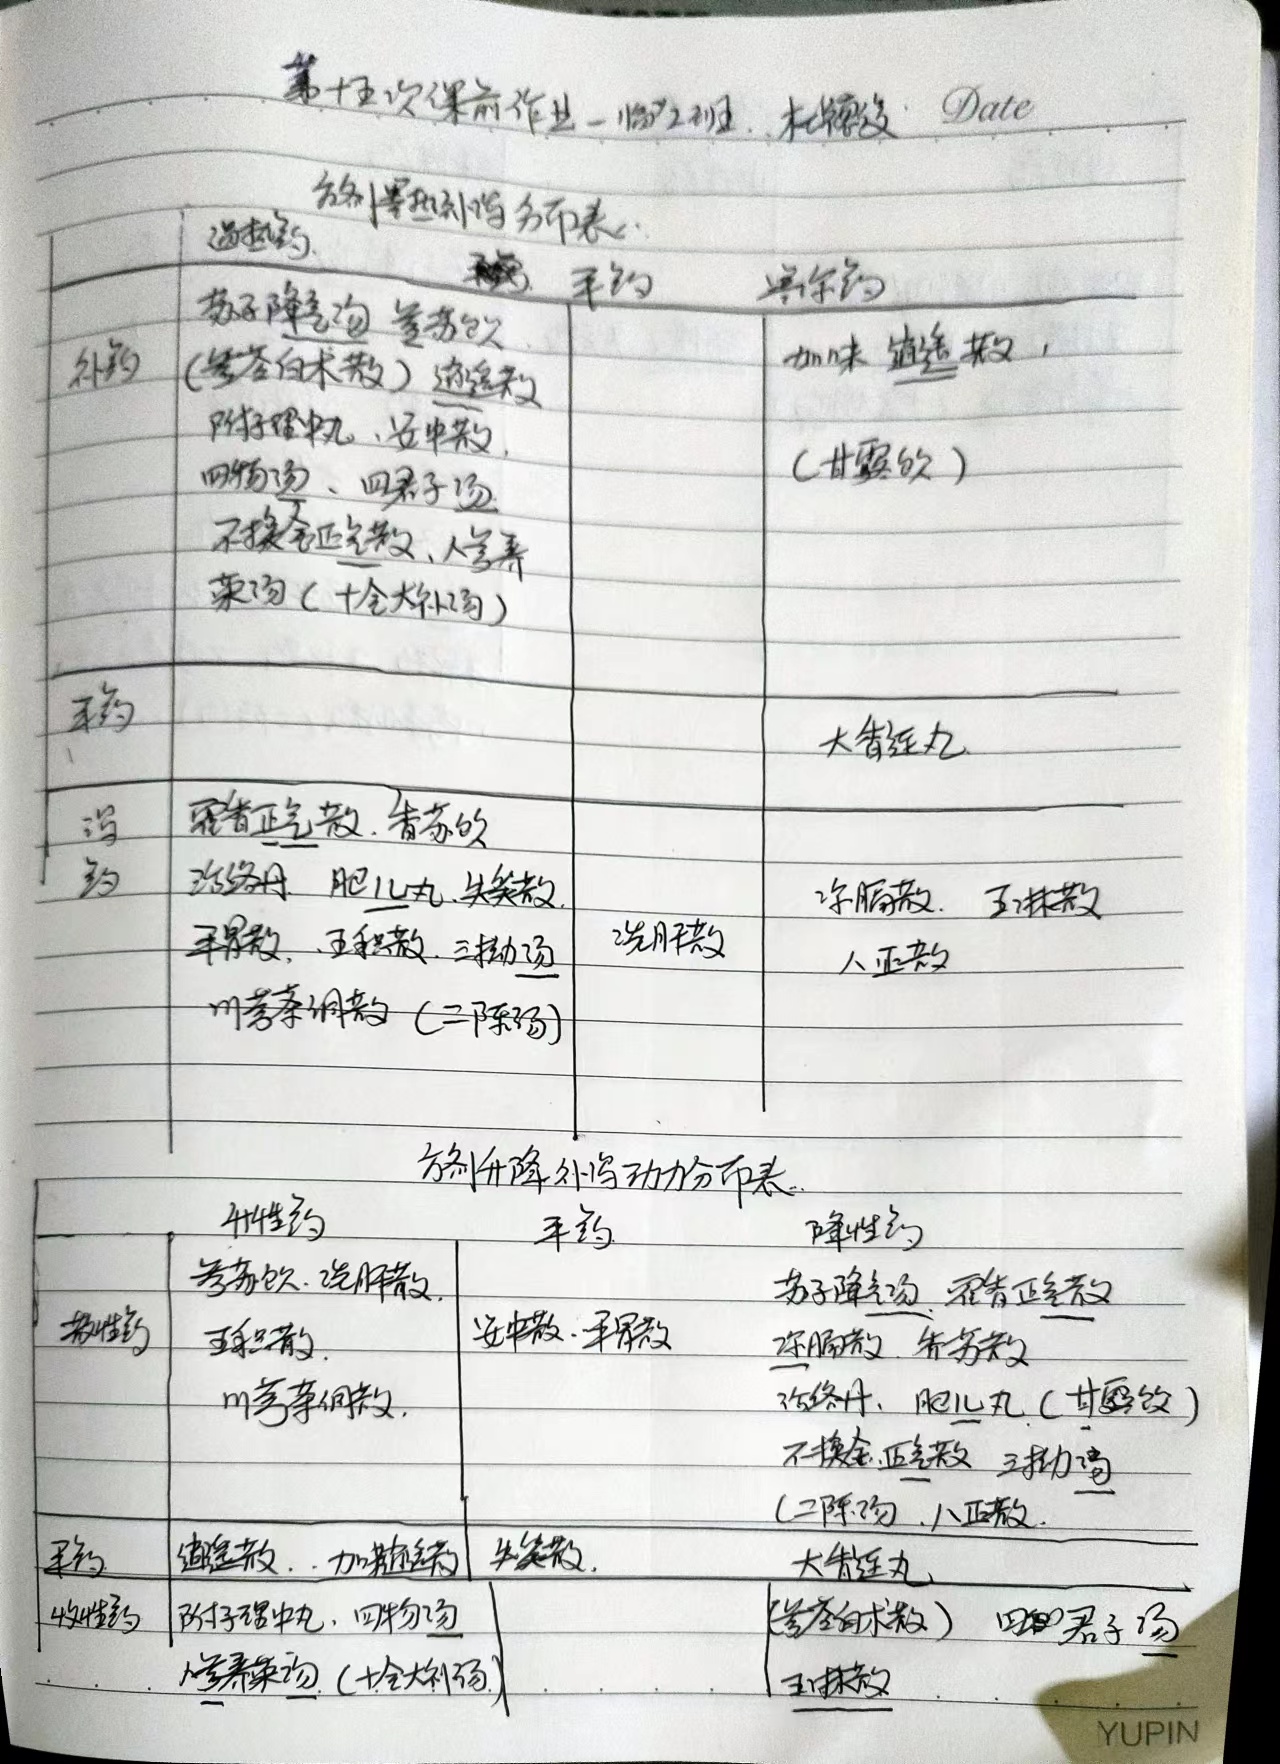 第十五次课前作业-临沪2班. Date
方剂寒热补泻分布表.
温热药 平药 寒凉药
补药
苏子降气汤 参苏饮
(参苓白术散) 逍遥散
附子理中丸、安中散,
四物汤、四君子汤
不换金正气散、人参养
荣汤(十全大补汤)
加味逍遥散,
(甘露饮)
平药
大香连丸
泻
药
藿香正气散. 香苏饮
活络丹 肥儿丸、失笑散,
平胃散, 五积散. 三拗汤
川芎茶调散 (二陈汤)
洗肝散
凉膈散. 五淋散
八正散
方剂升降补泻动力分布表..
升性药 平药 降性药
散性药
参苏饮. 洗肝散.
五积散.
川芎茶调散.
安中散. 平胃散
苏子降气汤、藿香正气散
凉膈散 香苏散
活络丹、肥儿丸(甘露饮)
不换金正气散 三拗汤
(二陈汤 八正散.
平药 逍遥散. 加味逍遥散 失笑散. 大香连丸
收性药 附子理中丸、四物汤 (参苓白术散) 四君子汤
人参养荣汤 (十全大补汤) 五淋散
YUPIN